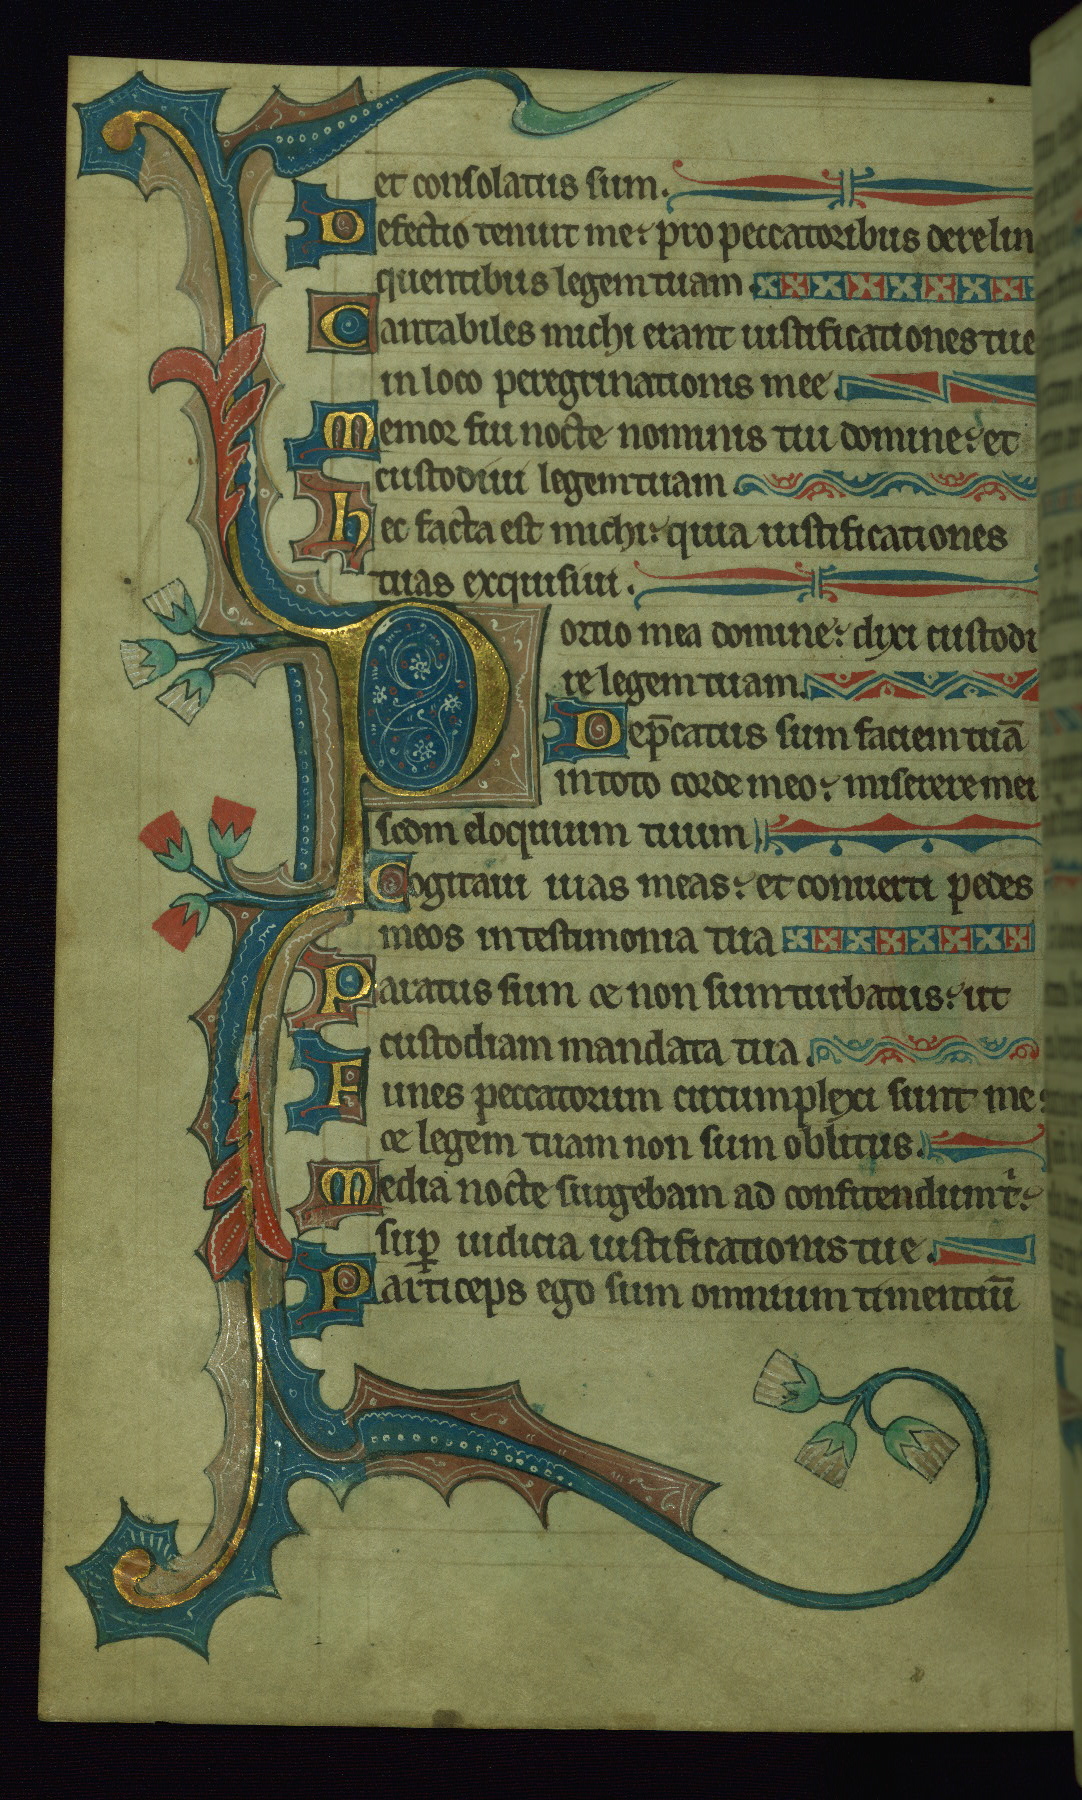 et consolatus sum.
Defectio tenuit me: pro peccatoribus derelin
quentibus legem tuam.
Cantabiles michi erant iustificationes tue
in loco peregrinationis mee.
Memor fui nocte nominis tui domine: et
custodiui legem tuam.
hec facta est michi: quia iustificationes
tuas exquisiui.
Portio mea domine: dixi custodi
re legem tuam.
Dep̄catus sum faciem tuā
in toto corde meo: miserere mei
scdm eloquium tuum
Cogitaui uias meas: et conuerti pedes
meos in testimonia tua
Paratus sum & non sum turbatus: ut
custodiam mandata tua.
Funes peccatorum circumplexi sunt me:
& legem tuam non sum oblitus.
Media nocte surgebam ad confitendum t̉:
sup̱ iudicia iustificationis tue.
Particeps ego sum omnium timentiū